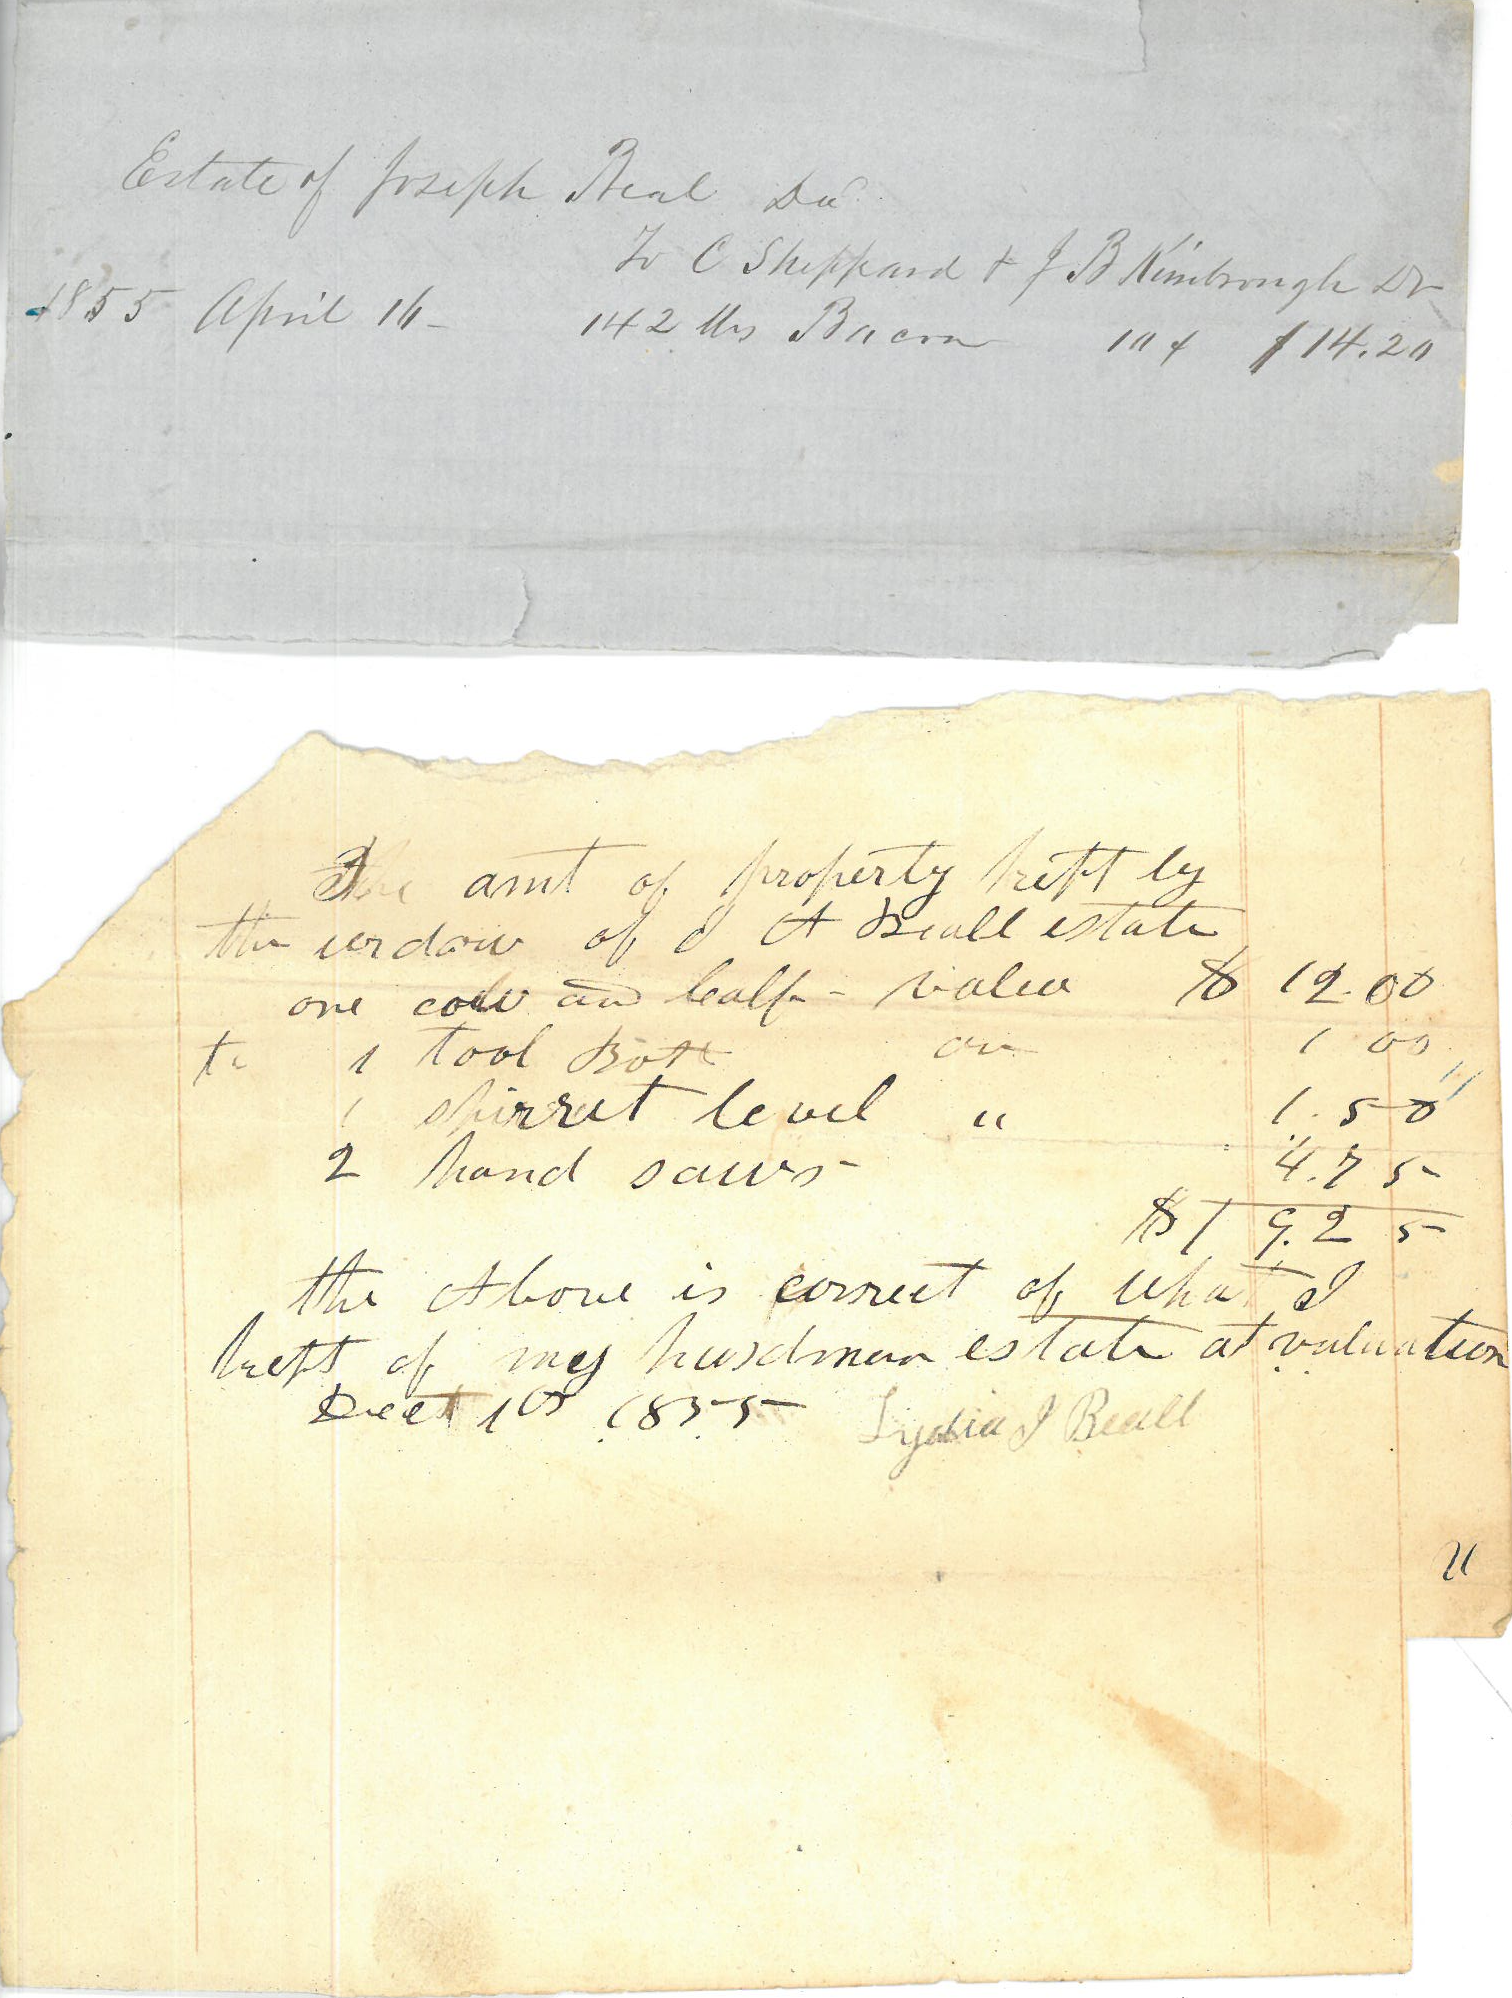 Estate of Joseph Beal Dcd
To C Sheppard & J B Kimbrough Dr
1855 April 16 - 142 lbs Bacon 10¢ $14.20
The amt of property kept by
the wrdow of J A Beall estate
one cow and Calf - value $ 12.00
to 1 tool Box 1 00
1 spirret level " 1.50
2 hand saws - 4.75
$19.25
the Above is correct of what I
kept of my husdman estate at valuation
Dect 1st 1855 Lydia J Beall